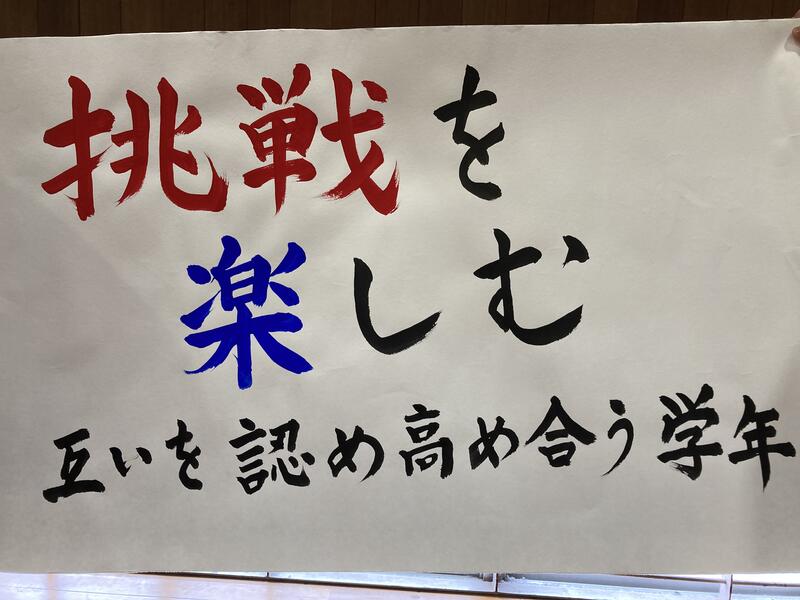 挑戦を
楽しむ
互いを認め高め合う学年